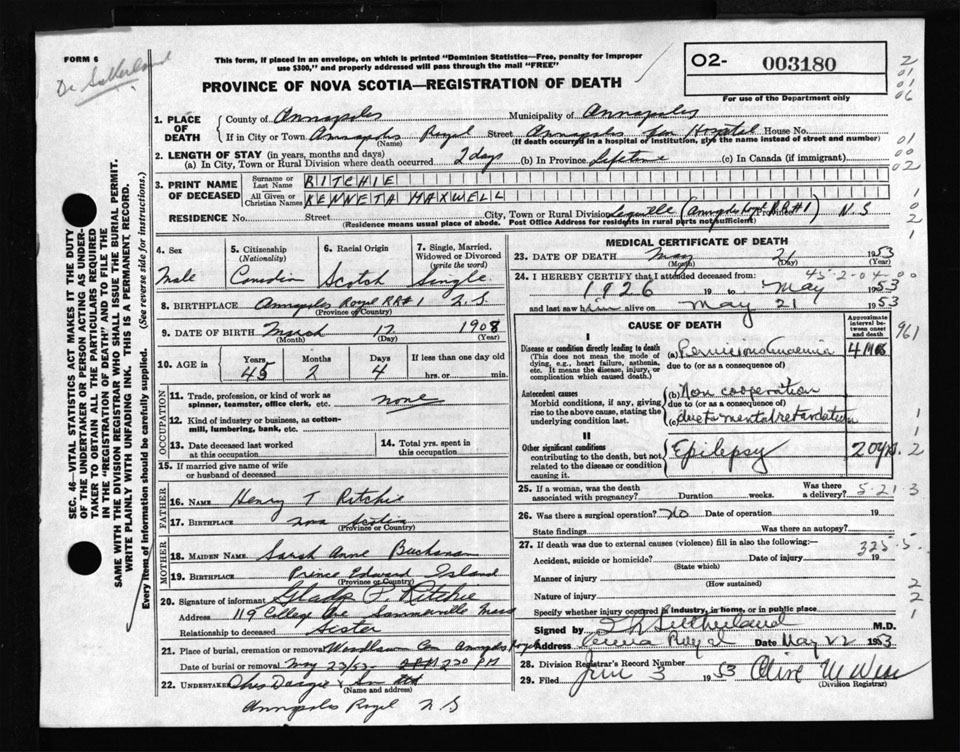 FORM 6
Dr Sutherland
This form, if placed in an envelope, on which is printed "Dominion Statistics—Free, penalty for improper
use $300," and properly addressed will pass through the mail "FREE"
PROVINCE OF NOVA SCOTIA—REGISTRATION OF DEATH
O2- 003180
For use of the Department only
2
01
01
06
01
00
02
1
0
2
1
SEC. 46—VITAL STATISTICS ACT MAKES IT THE DUTY
OF THE UNDERTAKER OR PERSON ACTING AS UNDER-
TAKER TO OBTAIN ALL THE PARTICULARS REQUIRED
IN THE "REGISTRATION OF DEATH" AND TO FILE THE
SAME WITH THE DIVISION REGISTRAR WHO SHALL ISSUE THE BURIAL PERMIT.
WRITE PLAINLY WITH UNFADING INK. THIS IS A PERMANENT RECORD.
Every item of information should be carefully supplied. (See reverse side for instructions.)
1. PLACE OF DEATH
County of Annapolis Municipality of Annapolis
If in City or Town Annapolis Royal Street Annapolis Gen Hospital House No.
(Name) (If death occurred in a hospital or institution, give the name instead of street and number)
2. LENGTH OF STAY (in years, months and days)
(a) In City, Town or Rural Division where death occurred 2 days (b) In Province Lifetime (c) In Canada (if immigrant)
3. PRINT NAME OF DECEASED
Surname or Last Name RITCHIE
All Given or Christian Names KENNETH MAXWELL
RESIDENCE No. Street City, Town or Rural Division Lequille (Annapolis Royal RR#1) Province N.S
(Residence means usual place of abode. Post Office Address for residents in rural parts not sufficient)
4. Sex
Male
5. Citizenship (Nationality)
Canadian
6. Racial Origin
Scotch
7. Single, Married, Widowed or Divorced (write the word)
Single
8. BIRTHPLACE Annapolis Royal RR#1 N.S
(Province or Country)
9. DATE OF BIRTH March 17 1908
(Month) (Day) (Year)
10. AGE in Years 45 Months 2 Days 4 If less than one day old
hrs. or min.
OCCUPATION
11. Trade, profession, or kind of work as
spinner, teamster, office clerk, etc. none
12. Kind of industry or business, as cotton-
mill, lumbering, bank, etc.
13. Date deceased last worked
at this occupation
14. Total yrs. spent in
this occupation
15. If married give name of wife
or husband of deceased
FATHER
16. NAME Henry T Ritchie
17. BIRTHPLACE Nova Scotia
(Province or Country)
MOTHER
18. MAIDEN NAME Sarah Anne Buchanan
19. BIRTHPLACE Prince Edward Island
(Province or Country)
20. Signature of informant Gladys P. Ritchie
Address 119 College Ave Sommerville Mass
Relationship to deceased Sister
21. Place of burial, cremation or removal Woodlawn Cem Annapolis Royal
Date of burial or removal May 23/53 2:30 PM
22. UNDERTAKER Dargie & Son Ltd
(Name and address)
Annapolis Royal N S
MEDICAL CERTIFICATE OF DEATH
23. DATE OF DEATH May 21 1953
(Month) (Day) (Year)
45-2-04-00
24. I HEREBY CERTIFY that I attended deceased from:
1926 to May 1953
and last saw him alive on May 21 1953
CAUSE OF DEATH
Approximate interval between onset and death
961
I
Disease or condition directly leading to death
(This does not mean the mode of
dying, e.g., heart failure, asthenia,
etc. It means the disease, injury, or
complication which caused death.)
(a) Pernicious Anaemia 4 Mos
due to (or as a consequence of)
Antecedent causes
Morbid conditions, if any, giving
rise to the above cause, stating the
underlying condition last.
(b) Non cooperation
due to (or as a consequence of)
(c) due to mental retardation
1
II
Other significant conditions
contributing to the death, but not
related to the disease or condition
causing it.
Epilepsy 20 yrs.
1
2
25. If a woman, was the death
associated with pregnancy? Duration weeks. Was there
a delivery?
5-21 3
26. Was there a surgical operation? No Date of operation 19
State findings Was there an autopsy?
27. If death was due to external causes (violence) fill in also the following:—
Accident, suicide or homicide? Date of injury 19
(State which)
325-5
Manner of injury
(How sustained)
Nature of injury
2
2
1
Specify whether injury occurred in industry, in home, or in public place
Signed by Sutherland M.D.
Address Royal Date May 22 1953
28. Division Registrar's Record Number
29. Filed June 3 1953 Olive M
(Division Registrar)